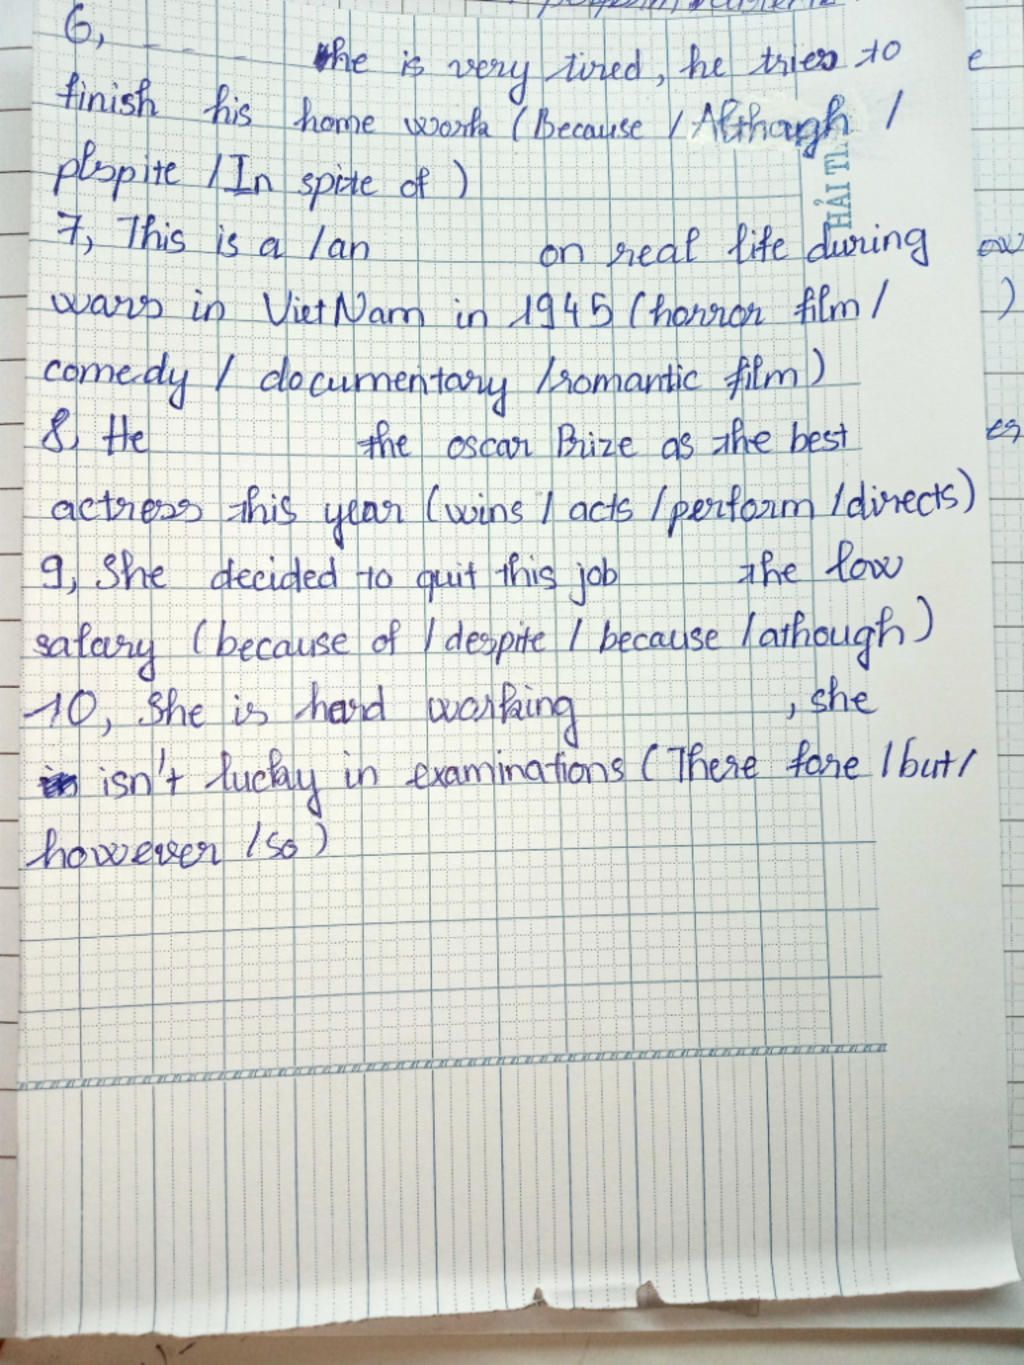 6, _ _ _ he is very tired, he tries to
finish his home work (Because / Although /
plspite / In spite of )
7, This is a / an on real life during
wars in Viet Nam in 1945 (horror film /
comedy / documentary / romantic film)
8, He the oscar Prize as the best
actress this year (wins / acts / perform / directs)
9, She decided to quit this job the low
salary (because of / despite / because / athough)
10, She is hard working , she
isn't lucky in examinations (There fore / but /
however / so )
HẢI